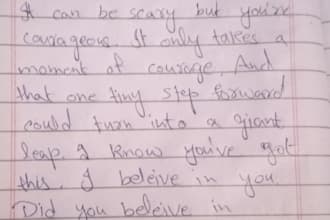 It can be scary but you're
courageous. It only takes a
moment of courage. And
that one tiny step forward
could turn into a giant
leap. I know you've got
this. I beleive in you
Did you beleive in